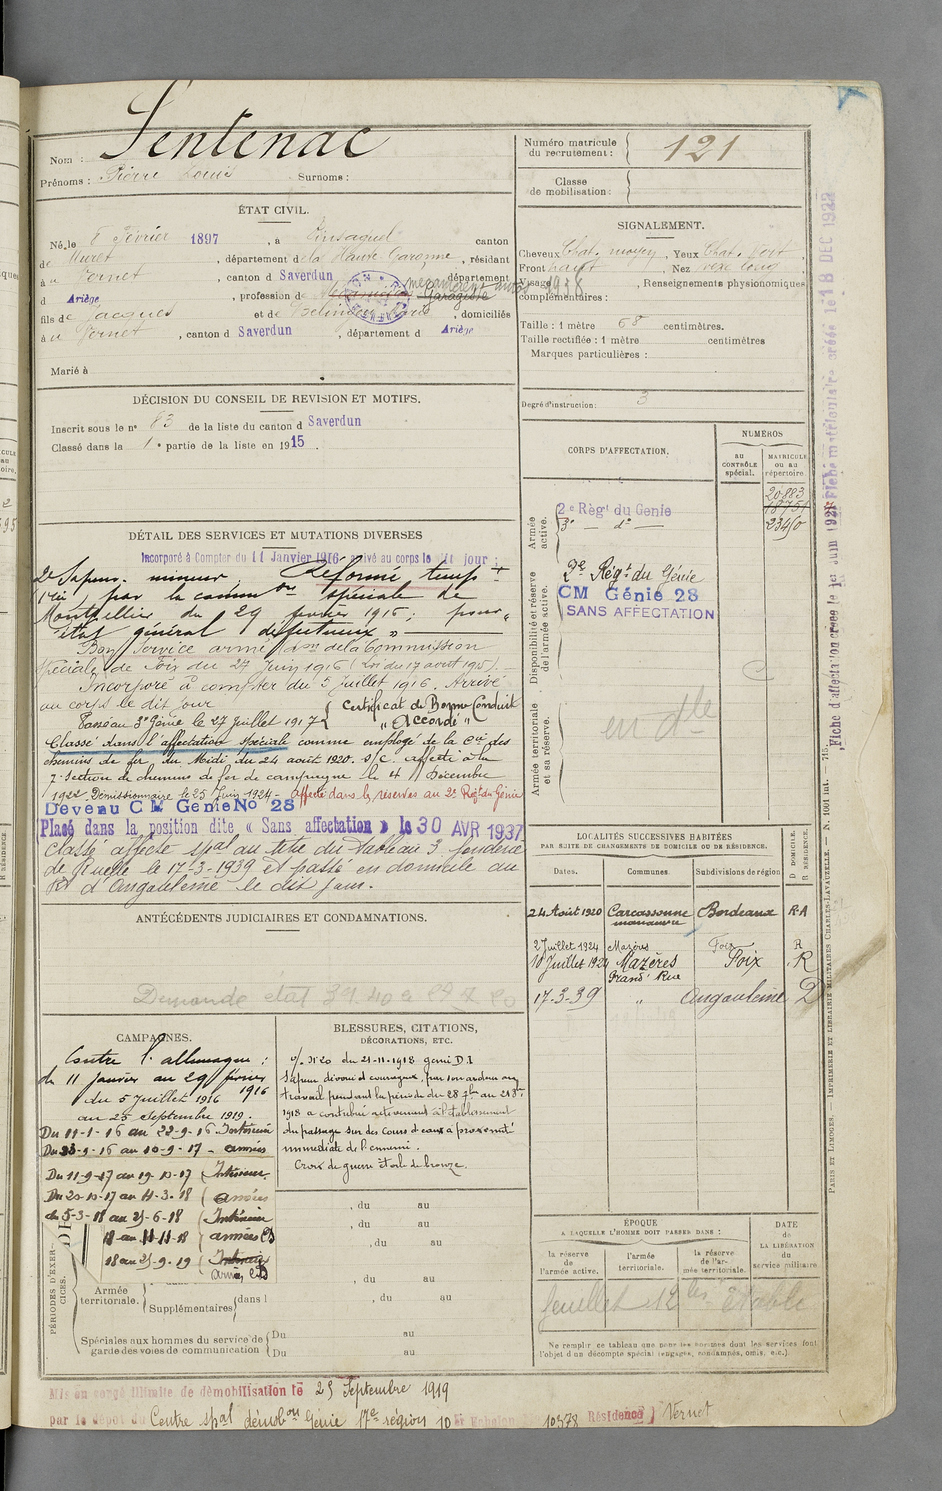 Nom : Sentenac
Prénoms : Pierre Louis Surnoms :
Numéro matricule du recrutement : 121
Classe de mobilisation :
ÉTAT CIVIL.
Né le 8 Février 1897, à Pinsaguel canton
de Muret, département de la Haute Garonne, résidant
à Vernet, canton d Saverdun, département
d Ariège, profession de Garagiste
fils de Jacques et de , domiciliés
à Vernet, canton d Saverdun, département d Ariège
Marié à
SIGNALEMENT.
Cheveux Chat. moyen, Yeux Chat. fort
Front haut, Nez vexe long
Visage , Renseignements physionomiques
complémentaires :
Taille : 1 mètre 68 centimètres.
Taille rectifiée : 1 mètre centimètres
Marques particulières :
Degré d'instruction : 3
DÉCISION DU CONSEIL DE REVISION ET MOTIFS.
Inscrit sous le n° 83 de la liste du canton d Saverdun
Classé dans la 1e partie de la liste en 1915.
CORPS D'AFFECTATION.
NUMÉROS
AU CONTRÔLE spécial.
MATRICULE ou au répertoire.
Armée active.
2e Régt du Genie 20883
3e — do — 18751
2340
Disponibilité et réserve de l'armée active.
2e Régt du Génie
CM Génie 28
SANS AFFECTATION
Armée territoriale et sa réserve.
en dlle
DÉTAIL DES SERVICES ET MUTATIONS DIVERSES
Incorporé à Compter du 11 Janvier 1916 arrivé au corps le dit jour
2e Sapeur-mineur. Réformé tempre
n° 1, par la common spéciale de
Montpellier du 29 février 1916 ; pour "
état général défectueux " —
Bon Service armé don de la Commission
Spéciale de Foix du 27 Juin 1916 (Loi du 17 aout 1915). —
Incorporé à compter du 5 Juillet 1916. Arrivé
au corps le dit jour
Passé au 3e Génie le 27 juillet 1917
Certificat de Bonne Conduit
" Accordé "
Classé dans l'affectation spéciale comme employé de la Cie des
chemins de fer du Midi du 24 août 1920. s/c. affecté à la
7e Section de chemins de fer de campagne le 4 Décembre
1922. Démissionnaire le 25 Juin 1924 — Affecté dans les réserves au 2e Régt du Génie
Devenu C M Genie No 28
Placé dans la position dite « Sans affectation » le 30 AVR 1937
Classé affecté spal au titre du tableau 3 fonderie
de Ruelle le 17-3-1939 et passé en domicile au
Rt d'Angoulème le dit jour.
ANTÉCÉDENTS JUDICIAIRES ET CONDAMNATIONS.
Demande état
LOCALITÉS SUCCESSIVES HABITÉES
PAR SUITE DE CHANGEMENTS DE DOMICILE OU DE RÉSIDENCE.
Dates. Communes. Subdivisions de région D DOMICILE. R RÉSIDENCE.
24 Août 1920 Carcassonne Bordeaux R-A
2 Juillet 1924 Mazères Foix R
10 Juillet 1924 Mazères Foix R
Grand' Rue
17-3-39 " Angoulème D
CAMPAGNES.
Contre l'allemagne :
du 11 janvier au 29 février 1916
du 5 Juillet 1916
au 25 Septembre 1919.
Du 11-1-16 au 22-9-16 Intérieur
Du 23-9-16 au 10-9-17 - armées
Du 11-9-17 au 19-10-17 Intérieur
Du 20-10-17 au 4-3-18 armées
du 5-3-18 au 21-6-18 Intérieur
18 au 11-11-18 armées
18 au 25-9-19
PÉRIODES D'EXERCICES.
Armée territoriale.
Supplémentaires dans l
Spéciales aux hommes du service de garde des voies de communication
Du au
Du au
BLESSURES, CITATIONS,
DÉCORATIONS, ETC.
o/. N° 20 du 21-11-1918 genie D.I
Sapeur dévoué et courageux, par son ardeur au
travail pendant la période du 28 7bre au
1918 a contribué activement à l'établissement
du passage sur des cours d'eaux à proximité
immédiate de l'ennemi.
Croix de guerre étoile de bronze.
, du au
, du au
, du au
, du au
, du au
, du au
ÉPOQUE
A LAQUELLE L'HOMME DOIT PASSER DANS :
la réserve de l'armée active.
l'armée territoriale.
la réserve de l'armée territoriale.
DATE de LA LIBÉRATION du service militaire
feuillet 12 bis établi
Ne remplir ce tableau que pour les hommes dont les services font
l'objet d'un décompte spécial (engagés, condamnés, omis, etc.).
Mis en congé illimité de démobilisation le 25 Septembre 1919
par le dépôt du Centre spal démobon Génie 17e région 10e Echelon 10378 Résidence) Vernet
Fiche d'affectation créée le 1er Juin 192
Fiche matriculaire créée le 18 DEC 1922
PARIS ET LIMOGES. — IMPRIMERIE ET LIBRAIRIE MILITAIRES CHARLES-LAVAUZELLE. — N. 1001 int. 715.